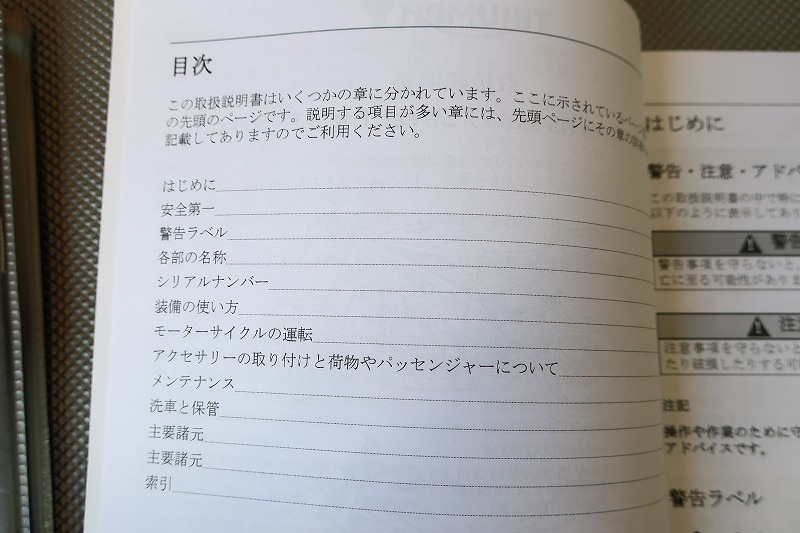 目次
この取扱説明書はいくつかの章に分かれています。ここに示されているページ
の先頭のページです。説明する項目が多い章には、先頭ページにその章の
記載してありますのでご利用ください。
はじめに
安全第一
警告ラベル
各部の名称
シリアルナンバー
装備の使い方
モーターサイクルの運転
アクセサリーの取り付けと荷物やパッセンジャーについて
メンテナンス
洗車と保管
主要諸元
主要諸元
索引
はじめに
警告・注意・アドバ
この取扱説明書の中で特に
以下のように表示してあり
警告
警告事項を守らないと、
亡に至る可能性があり
注意
注意事項を守らないと
たり破損したりする可
注記
操作や作業のために守
アドバイスです。
警告ラベル